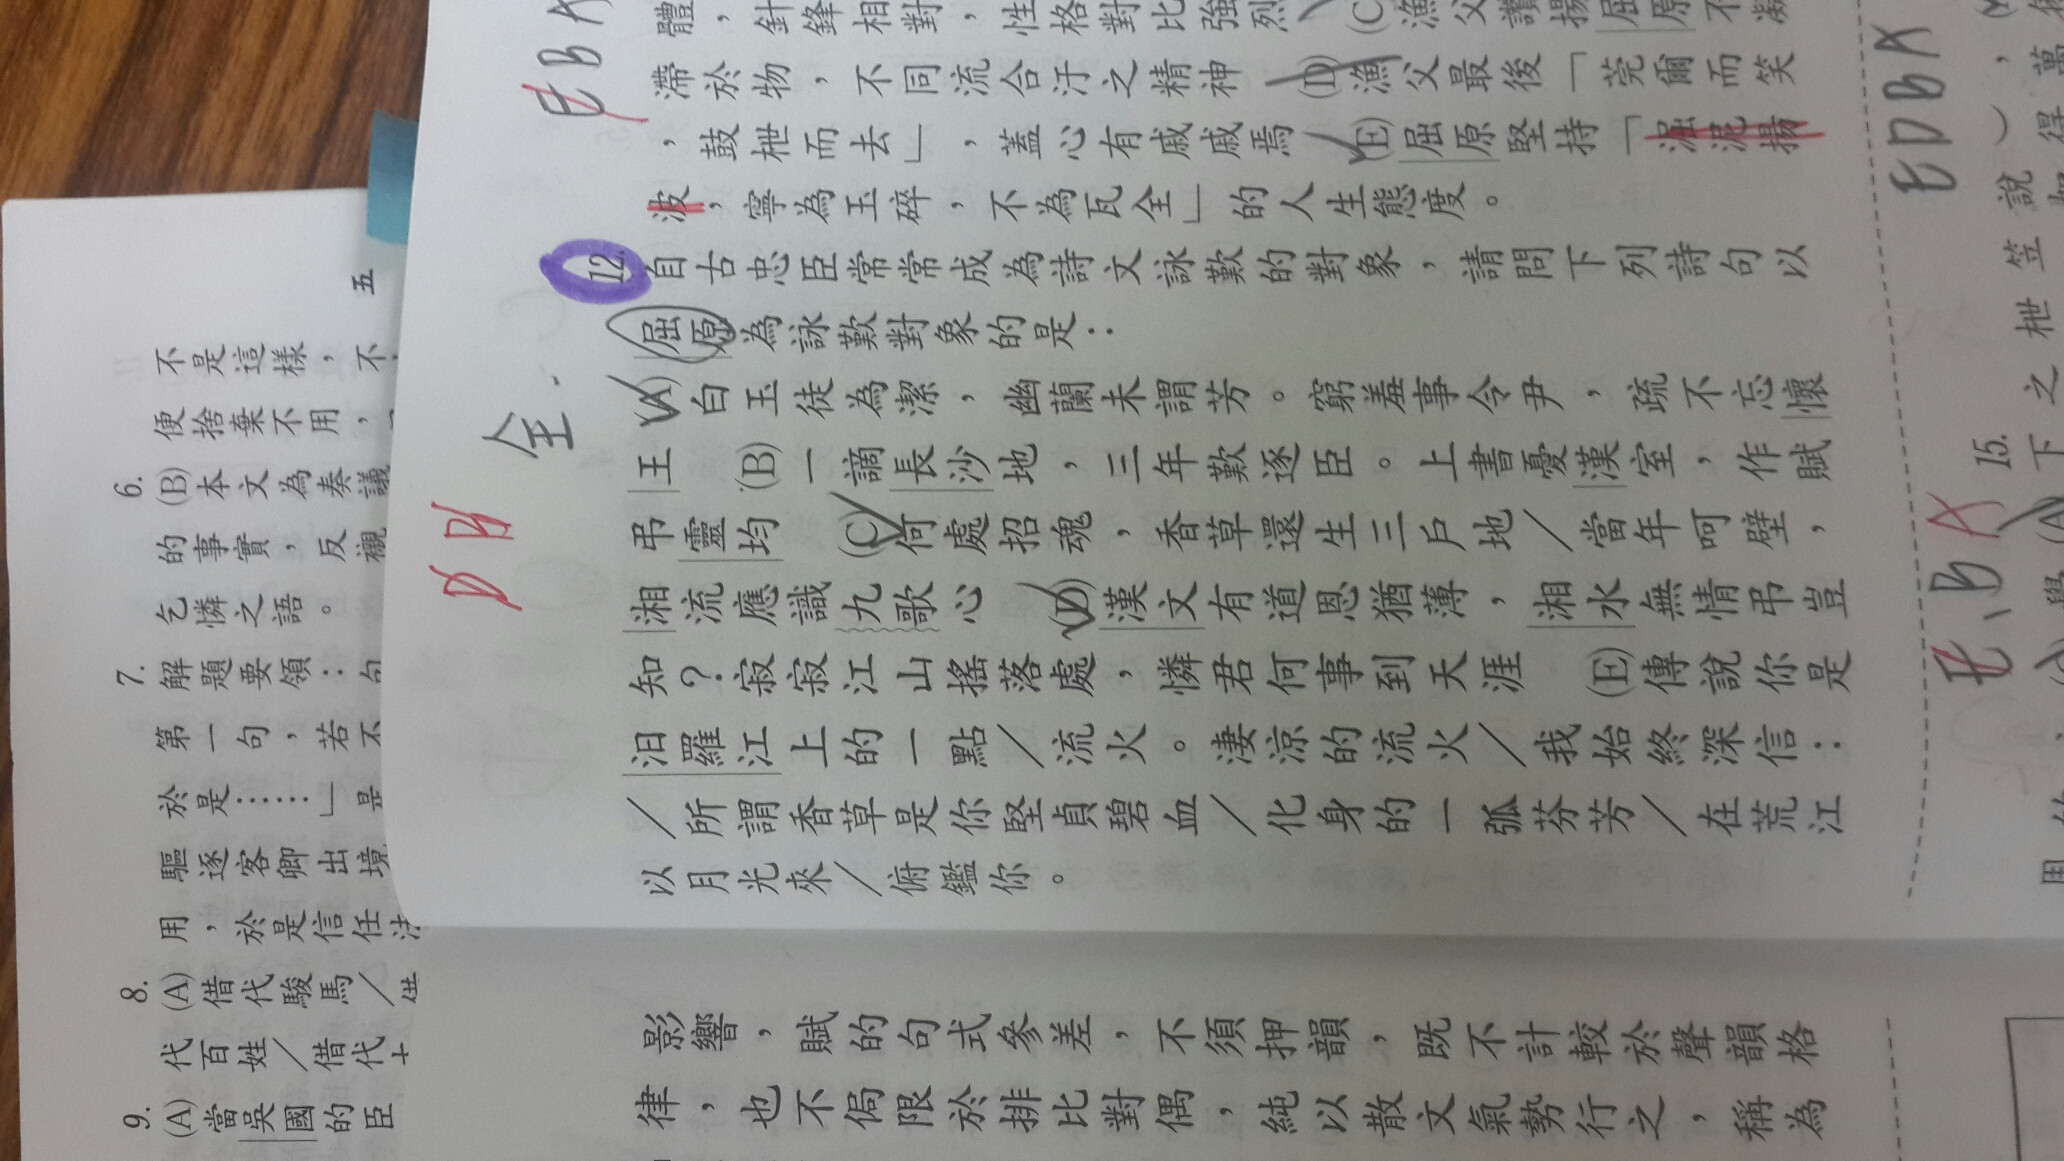 體，針鋒相對，性格對比強烈 (C)漁父讚揚屈原不凝
滯於物，不同流合汙之精神 (D)漁父最後「莞爾而笑
，鼓枻而去」，蓋心有戚戚焉 (E)屈原堅持「淈泥揚
波，寧為玉碎，不為瓦全」的人生態度。
12. 自古忠臣常常成為詩文詠歎的對象，請問下列詩句以
屈原為詠歎對象的是：
(A)白玉徒為潔，幽蘭未謂芳。窮羞事令尹，疏不忘懷
王 (B)一謫長沙地，三年歎逐臣。上書憂漢室，作賦
弔靈均 (C)何處招魂，香草還生三戶地／當年呵壁，
湘流應識九歌心 (D)漢文有道恩猶薄，湘水無情弔豈
知？寂寂江山搖落處，憐君何事到天涯 (E)傳說你是
汨羅江上的一點／流火。淒涼的流火／我始終深信：
／所謂香草是你堅貞碧血／化身的一弧芬芳／在荒江
以月光來／俯鑑你。
E B A
全.
D B
E D B A
E、B A
15.
下
之
枻
笠
說
影響，賦的句式參差，不須押韻，既不計較於聲韻格
律，也不侷限於排比對偶，純以散文氣勢行之，稱為
五
不是這樣，不
便捨棄不用，
6. (B)本文為奏議
的事實，反襯
乞憐之語。
7. 解題要領：句
第一句，若不
於是……」是
驅逐客卿出境
用，於是信任
8. (A)借代駿馬／借
代百姓／借代
9. (A)當吳國的臣